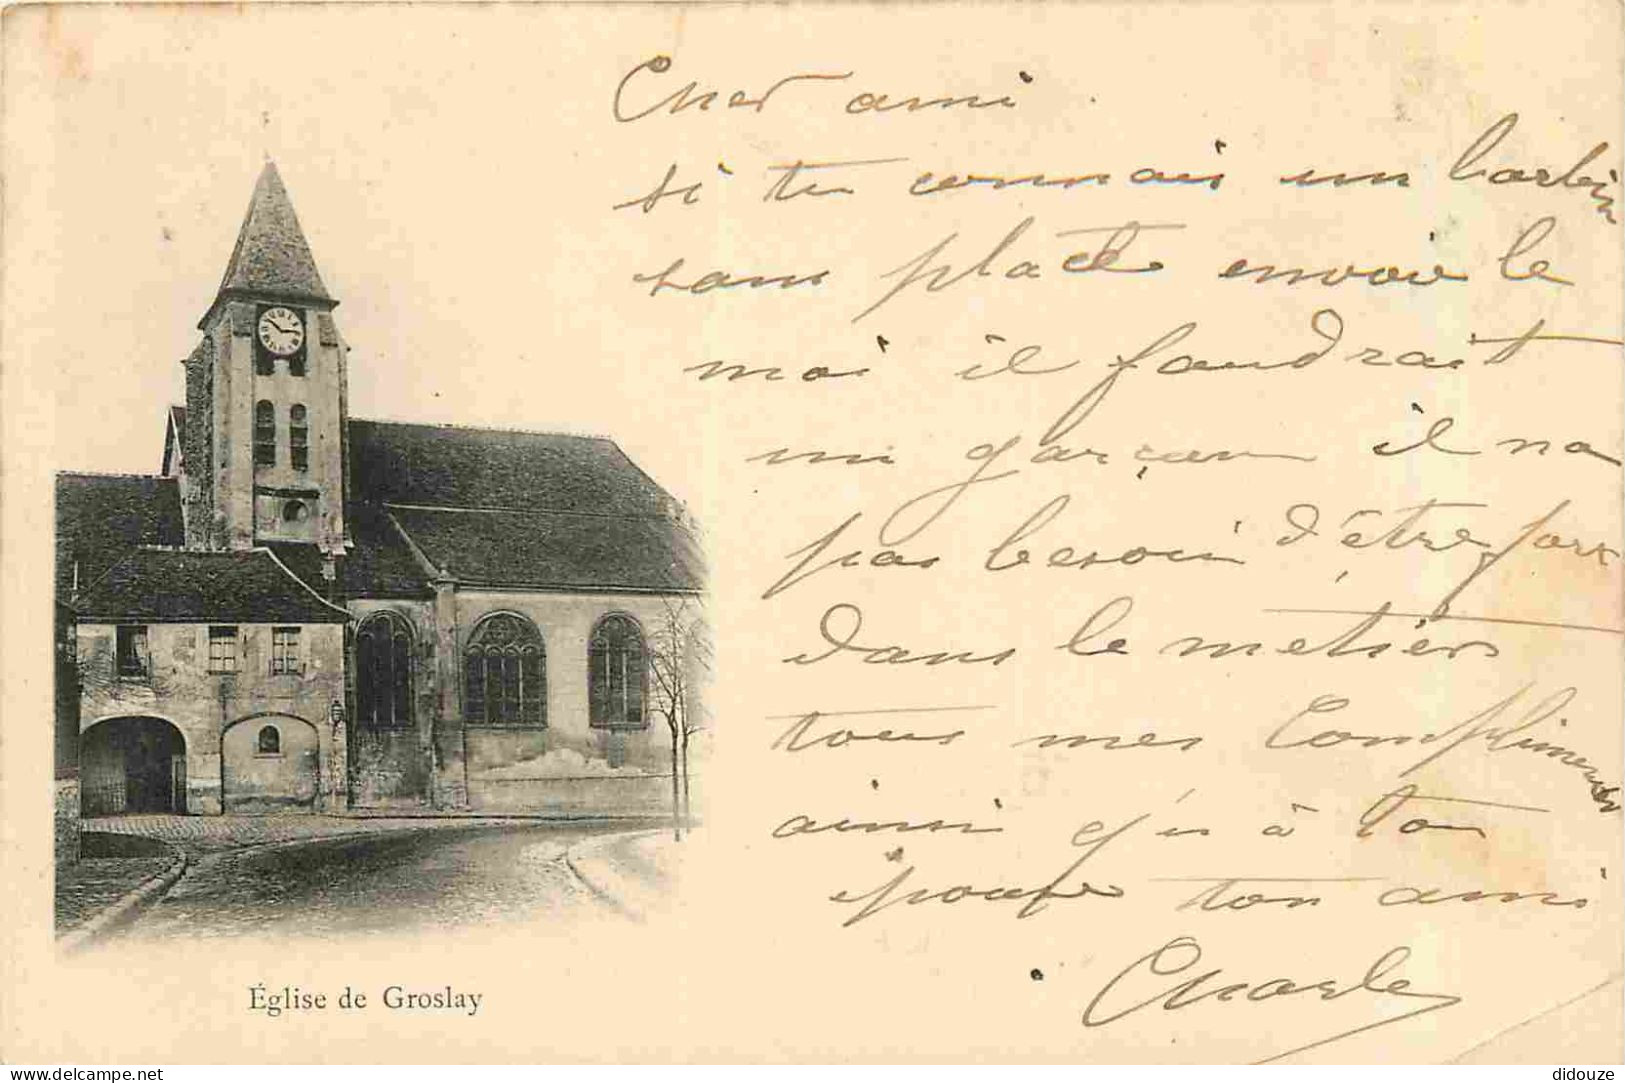 Cher ami.
si tu connais un larbin
sans place envoie le
moi il faudrait
un garçon il na
pas besoin d'être fort
dans le metier
tous mes Compliments
ainsi qu'a à ton
épouse ton ami
Charles
Église de Groslay
www.delcampe.net
didouze